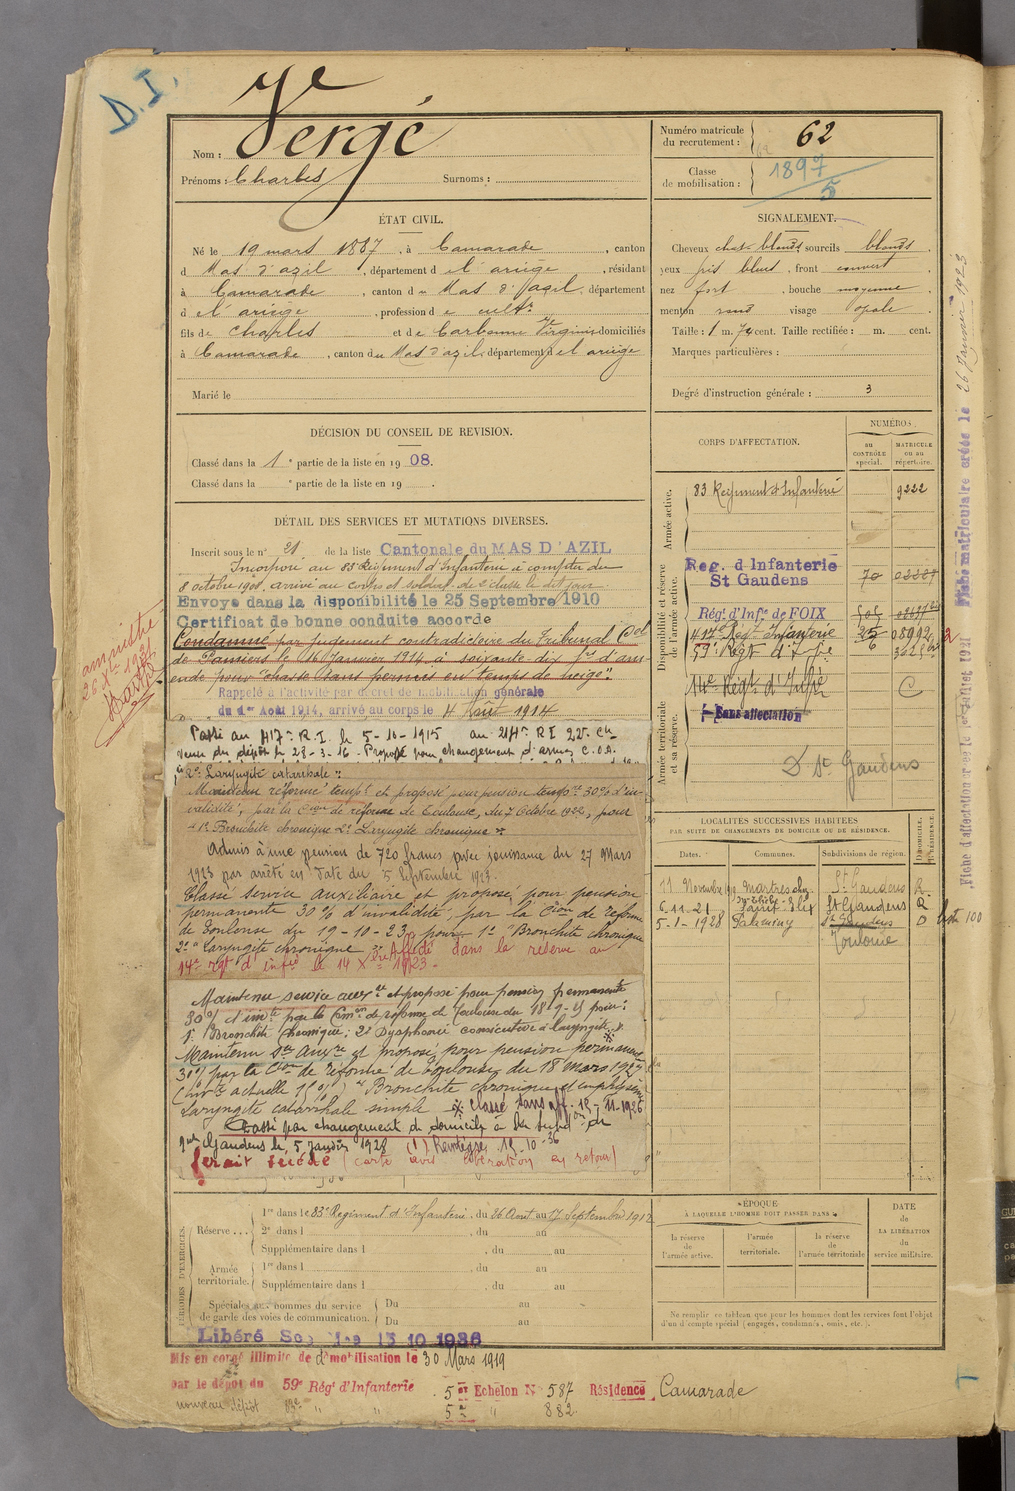 D.I.
Vergé
Nom :
Prénoms : Charles Surnoms :
Numéro matricule
du recrutement : 62
Classe
de mobilisation : 1897
5
ÉTAT CIVIL.
Né le 19 mars 1887, à Camarade, canton
d Mas d'azil, département d e l'ariège, résidant
à Camarade, canton du Mas d'azil, département
d e l'ariège, profession d e cult
fils de Charles et de Carbonne Virginie domiciliés
à Camarade, canton du Mas d'azil, département d el ariège
Marié le
SIGNALEMENT.
Cheveux chat-blonds sourcils blonds
yeux gris bleus, front couvert
nez fort, bouche moyenne
menton rond visage ovale
Taille : 1 m. 74 cent. Taille rectifiée : m. cent.
Marques particulières :
Degré d'instruction générale : 3
DÉCISION DU CONSEIL DE REVISION.
Classé dans la 1e partie de la liste en 1908.
Classé dans la e partie de la liste en 19 .
DÉTAIL DES SERVICES ET MUTATIONS DIVERSES.
Inscrit sous le n° 21 de la liste Cantonale du MAS D'AZIL
Incorporé au 83e Régiment d'Infanterie à compter du
8 octobre 1908, arrivé au corps et soldat de 2e classe le dit jour
Envoyé dans la disponibilité le 25 Septembre 1910
Certificat de bonne conduite accordé
Condamné par jugement contradictoire du Tribunal Cel
de Pamiers le 16 Janvier 1914 à soixante-dix frs d'am-
ende pour "chasse sans permis en temps de neige".
Rappelé à l'activité par décret de mobilisation générale
du 1er Août 1914, arrivé au corps le 4 Août 1914
amnistié
26 Xbre 1921
Passé au 417e R.I. le 5-10-1915 au 214e R I 22e Cie
venu du dépôt le 28-3-16. Proposé pour changement d'armes C.O.A.
2e Laryngite catarrhale
Maintenu réformé tempre et proposé pour pension tempre 30% d'in-
validité, par la Cion de réforme de Toulouse, du 7 Octobre 1922, pour
1° Bronchite chronique 2° Laryngite chronique
Admis à une pension de 720 francs avec jouissance du 27 Mars
1923 par arrêté en date du 5 Septembre 1923.
Classé service auxiliaire et proposé pour pension
permanente 30% d'invalidité, par la Cion de réforme
de Toulouse du 19-10-23 pour 1° Bronchite chronique
2° Laryngite chronique Affecté dans la réserve au
14e rgt d'infie le 14 Xbre 1923.
Maintenu service auxre et proposé pour pension permanente
30% d'invté par la Comon de réforme de Toulouse du 18-9-25 pour :
1° Bronchite chronique ; 2° Dysphonie consécutive à laryngite
Maintenu sce auxre et proposé pour pension permanente
30% par la Cion de réforme de Toulouse du 18 mars 1927
Bronchite chronique et emphysème
Laryngite catarrhale simple Classé sans aff. 12-11-1926
Passé par changement de domicile à la subdon de
St Gaudens le 5 Janvier 1928
serait décédé (carte avis libération en retour)
CORPS D'AFFECTATION.
NUMÉROS
au
CONTRÔLE
spécial.
MATRICULE
ou au
répertoire.
Armée active.
83 Régiment d'Infanterie 9222
Disponibilité et réserve
de l'armée active.
Reg. d Infanterie
St Gaudens 70
Régt d'Infie de FOIX 505
417e Régt Infanterie 25 08992
59e Regt d'Infie 6
14e Régt d'Infie C
Armée territoriale
et sa réserve.
Sans affectation
D St Gaudens
LOCALITÉS SUCCESSIVES HABITÉES
PAR SUITE DE CHANGEMENTS DE DOMICILE OU DE RÉSIDENCE.
Dates. Communes. Subdivisions de région.
D. DOMICILE.
R. RÉSIDENCE.
11 Novembre 1910 Martres St Gaudens R
6.11.21 St Gaudens R
5-1-1928 Palaminy St Gaudens D
Toulouse
Fiche matriculaire créée le 26 Janvier 1923
PÉRIODES D'EXERCICES
Réserve . . .
1re dans le 83e Régiment d'Infanterie, du 26 Aout au 17 Septembre 1912
2e dans l , du au
Supplémentaire dans l , du au
Armée
territoriale.
1re dans l , du au
Supplémentaire dans l , du au
Spéciales aux hommes du service
de garde des voies de communication.
Du au
Du au
ÉPOQUE
À LAQUELLE L'HOMME DOIT PASSER DANS :
la réserve
de
l'armée active.
l'armée
territoriale.
la réserve
de
l'armée territoriale
DATE
de
LA LIBÉRATION
du
service militaire.
Ne remplir ce tableau que pour les hommes dont les services font l'objet
d'un décompte spécial (engagés, condamnés, omis, etc.).
Libéré 15 10 1936
Mis en congé illimité de démobilisation le 30 Mars 1919
par le dépôt du 59e Régt d'Infanterie 5e Echelon N° 587 Résidence Camarade
nouveau dépôt " " 5e " 882